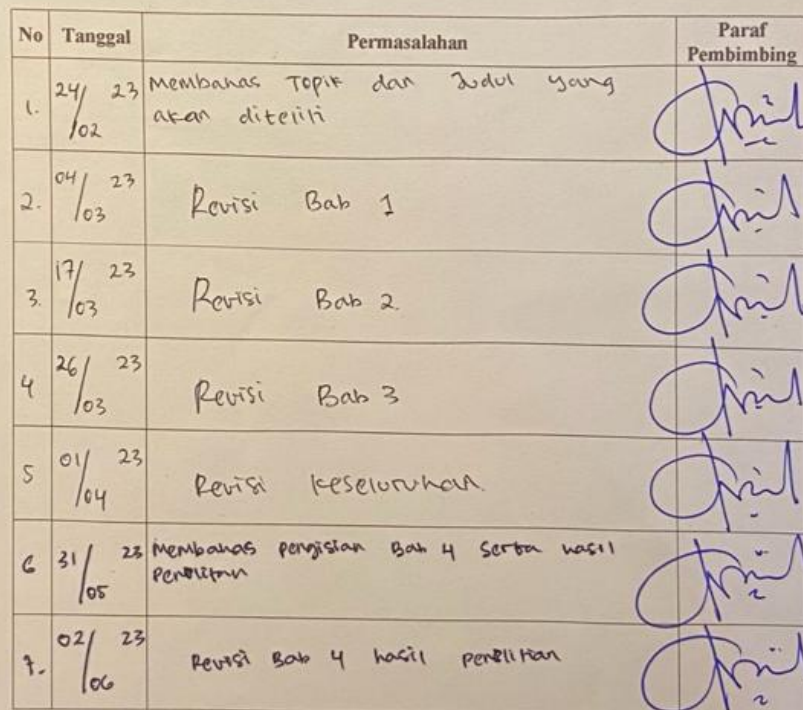 No Tanggal Permasalahan Paraf Pembimbing
1. 24/02 23 Membahas Topik dan Judul yang
akan diteliti
2. 04/03 23 Revisi Bab 1
3. 17/03 23 Revisi Bab 2.
4 26/03 23 Revisi Bab 3
5 01/04 23 Revisi keseluruhan.
6 31/05 23 Membahas pengisian Bab 4 serta hasil
Penelitian
7. 02/06 23 Revisi Bab 4 hasil penelitian